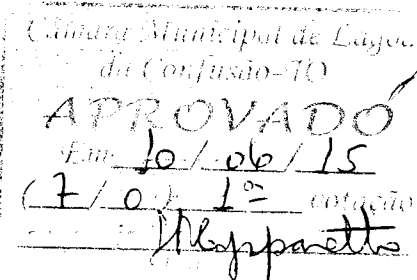 Câmara Municipal de Lagoa
da Confusão-TO
APROVADO
Em: 10 / 06 / 15
( 7 / 0 ) 1ª votação